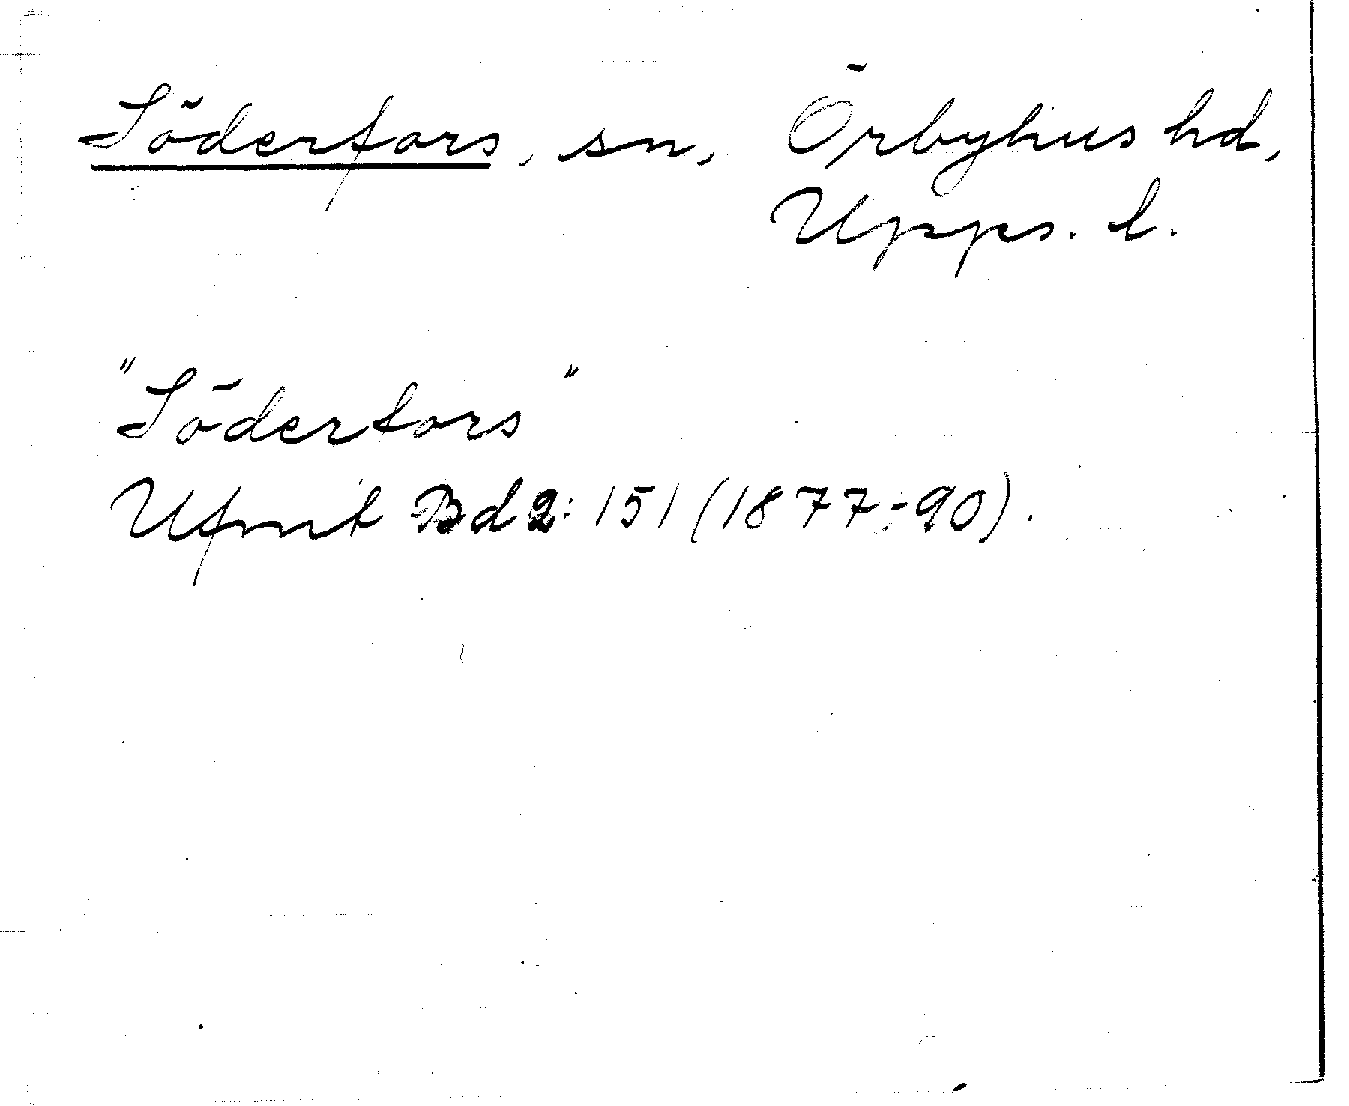 Söderfors, sn, Örbyhus hd,
Upps. l.
"Söderfors"
Ufmt Bd 2: 151 (1877-90).